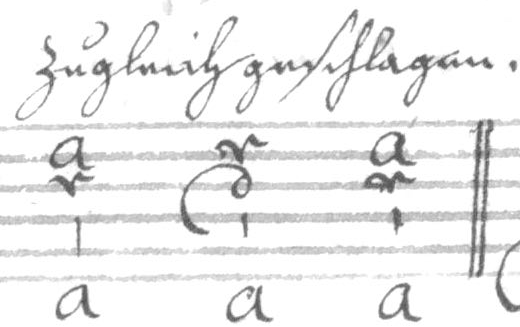 Zugleich geschlagen.
a r a
r d r
a a a